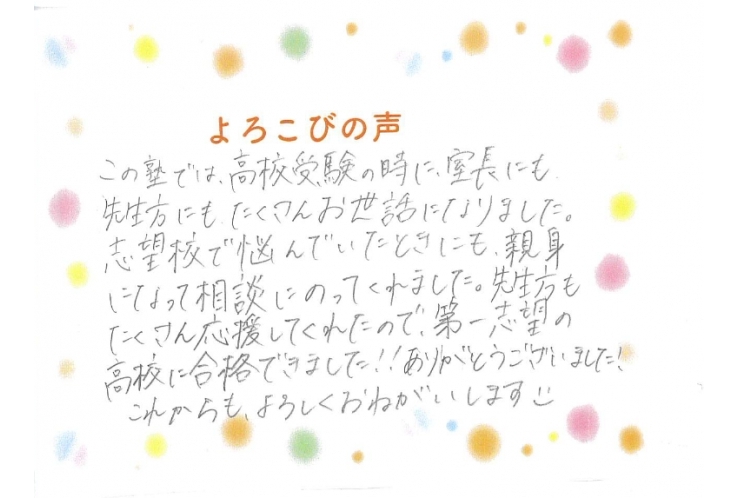 よろこびの声
この塾では、高校受験の時に、室長にも
先生方にも、たくさんお世話になりました。
志望校で悩んでいたときにも、親身
になって相談にのってくれました。先生方も
たくさん応援してくれたので、第一志望の
高校に合格できました!!ありがとうございました!
これからも、よろしくおねがいします